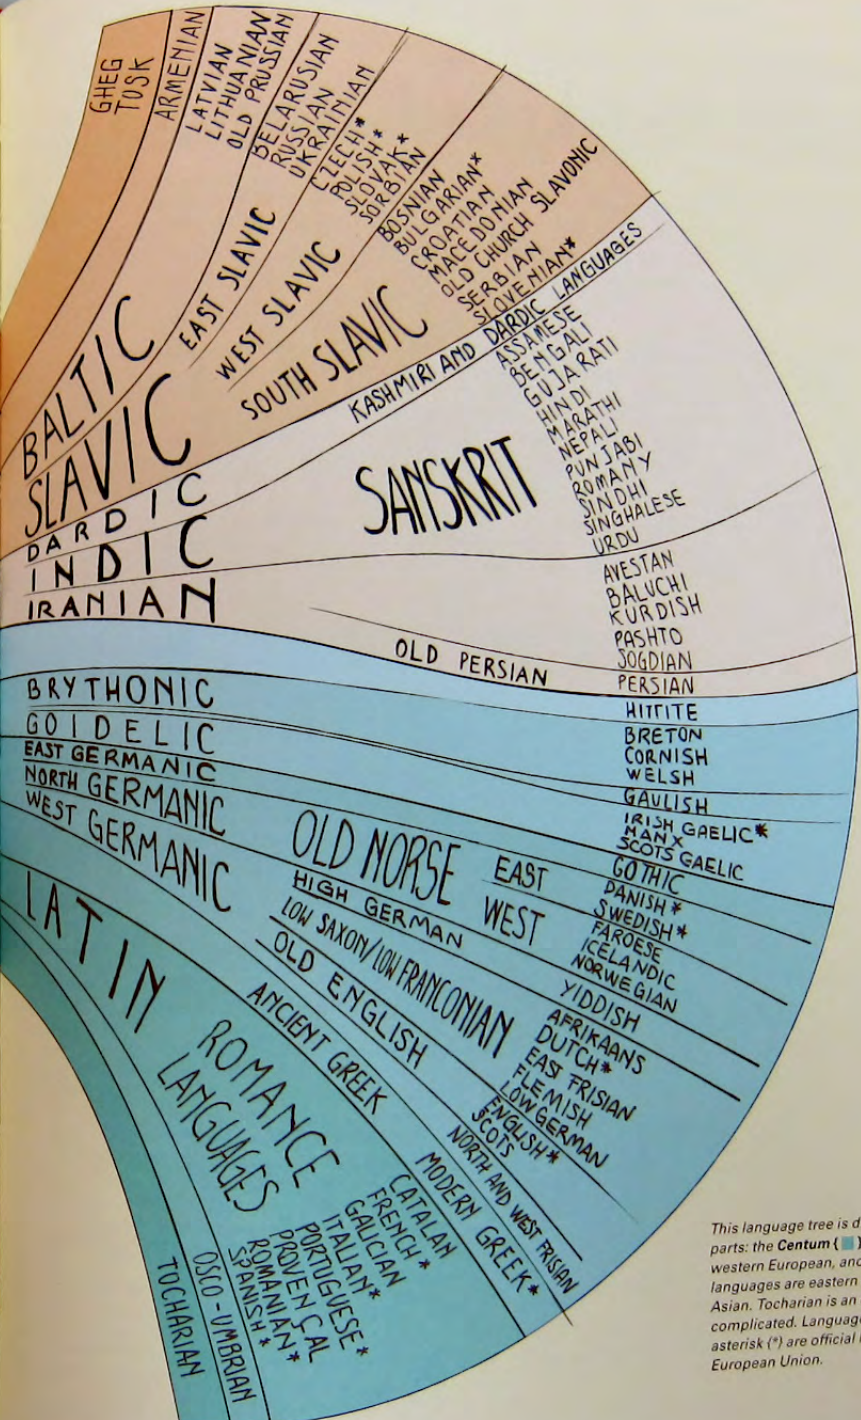 GHEG
TOSK
ARMENIAN
LATVIAN
LITHUANIAN
OLD PRUSSIAN
BELARUSIAN
RUSSIAN
UKRAINIAN
CZECH*
POLISH*
SLOVAK*
SORBIAN
BOSNIAN
BULGARIAN*
CROATIAN
MACEDONIAN
OLD CHURCH SLAVONIC
SERBIAN
SLOVENIAN*
BALTIC
SLAVIC
EAST SLAVIC
WEST SLAVIC
SOUTH SLAVIC
DARDIC
KASHMIRI AND DARDIC LANGUAGES
INDIC
SANSKRIT
ASSAMESE
BENGALI
GUJARATI
HINDI
MARATHI
NEPALI
PUNJABI
ROMANY
SINDHI
SINGHALESE
URDU
IRANIAN
AVESTAN
BALUCHI
KURDISH
PASHTO
SOGDIAN
OLD PERSIAN
PERSIAN
HITTITE
BRYTHONIC
BRETON
CORNISH
WELSH
GAULISH
GOIDELIC
IRISH GAELIC*
MANX
SCOTS GAELIC
EAST GERMANIC
GOTHIC
NORTH GERMANIC
OLD NORSE
EAST
DANISH*
SWEDISH*
WEST
FAROESE
ICELANDIC
NORWEGIAN
WEST GERMANIC
HIGH GERMAN
YIDDISH
LOW SAXON/LOW FRANCONIAN
AFRIKAANS
DUTCH*
EAST FRISIAN
FLEMISH
LOW GERMAN
OLD ENGLISH
ENGLISH*
SCOTS
NORTH AND WEST FRISIAN
ANCIENT GREEK
MODERN GREEK*
LATIN
ROMANCE
LANGUAGES
CATALAN
FRENCH*
GALICIAN
ITALIAN*
PORTUGUESE*
PROVENÇAL
ROMANIAN*
SPANISH*
OSCO-UMBRIAN
TOCHARIAN
This language tree is d
parts: the Centum ( )
western European, and
languages are eastern
Asian. Tocharian is an
complicated. Language
asterisk (*) are official
European Union.